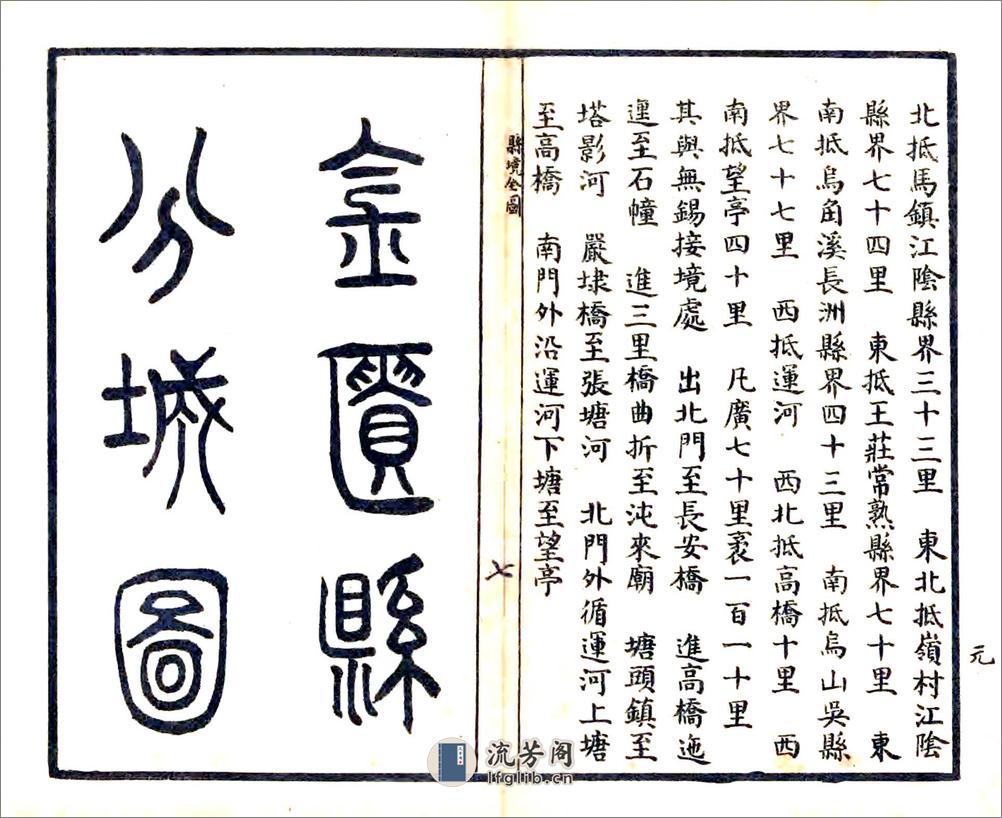 北抵馬鎮江陰縣界三十三里 東北抵嶺村江陰
縣界七十四里 東抵王莊常熟縣界七十里 東
南抵烏角溪長洲縣界四十三里 南抵烏山吳縣
界七十七里 西抵運河 西北抵高橋十里 西
南抵望亭四十里 凡廣七十里袤一百一十里
其與無錫接境處 出北門至長安橋 進高橋迤
邐至石幢 進三里橋曲折至沌來廟 塘頭鎮至
塔影河 嚴埭橋至張塘河 北門外循運河上塘
至高橋 南門外沿運河下塘至望亭
縣境全圖
七
元
金匱縣
分城圖
流芳阁
lfglib.cn